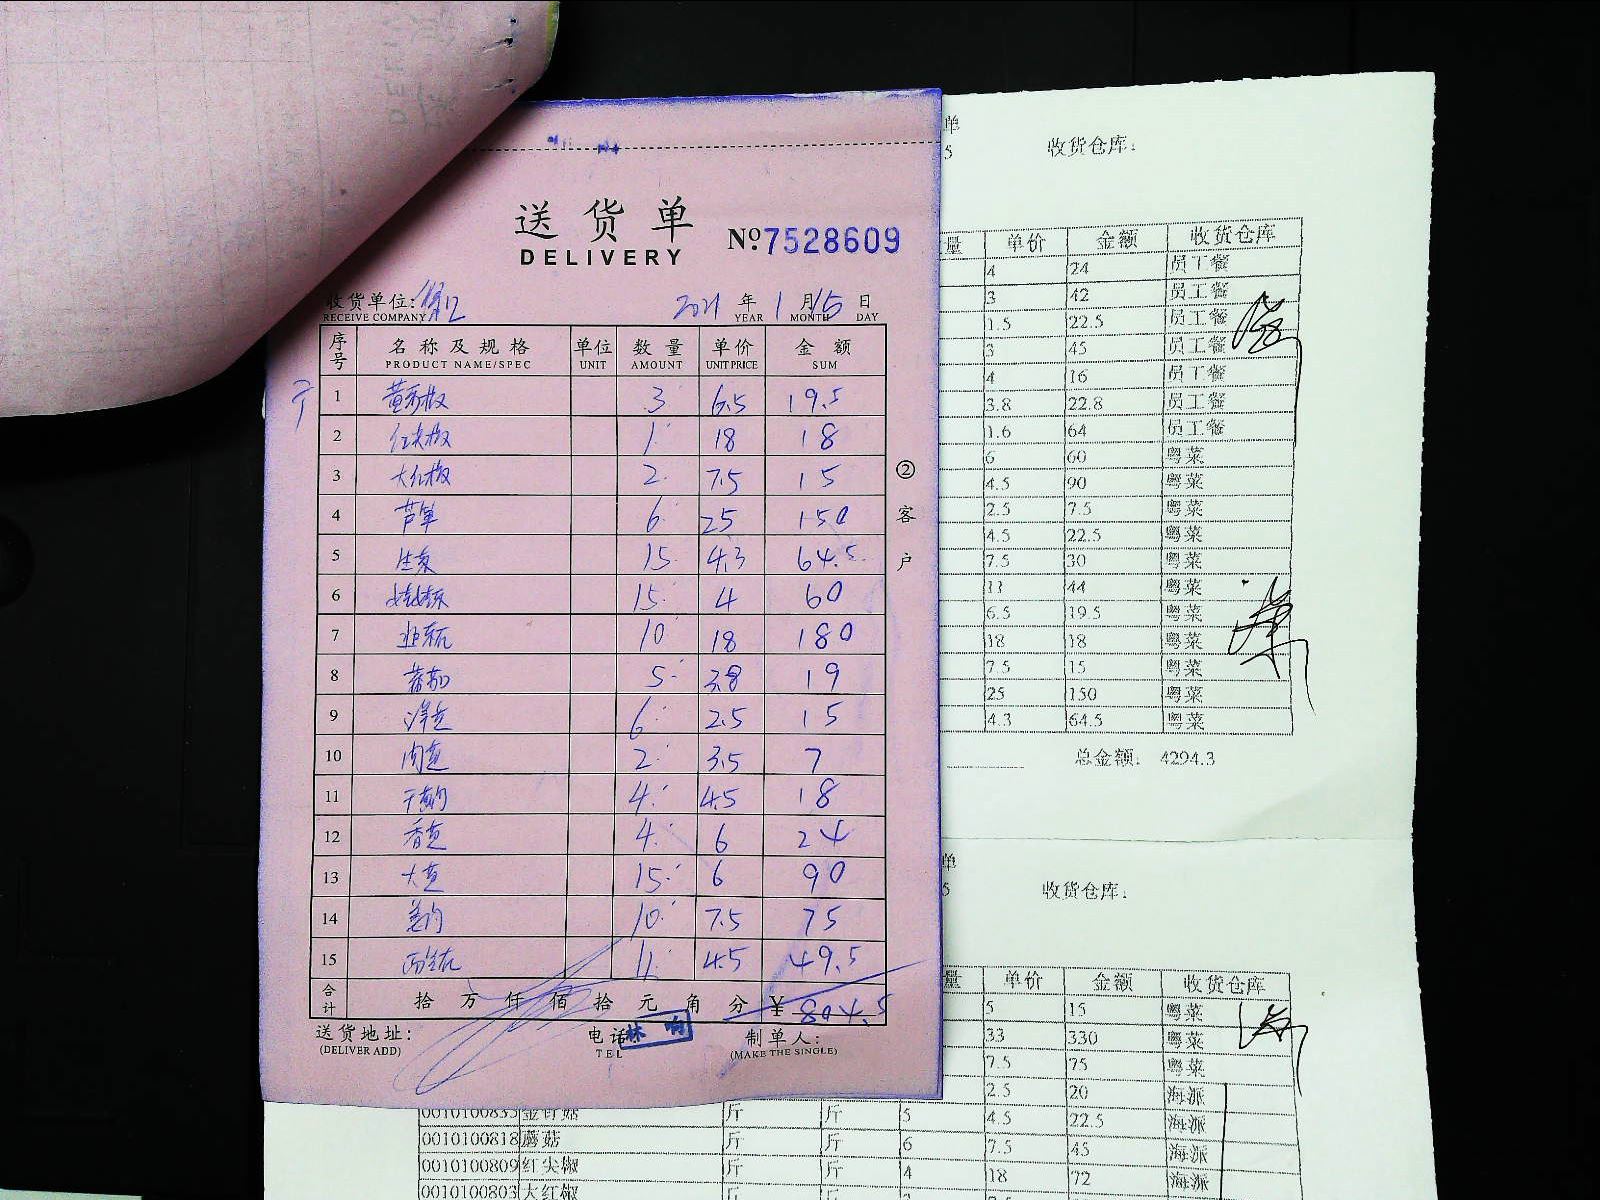 送货单
DELIVERY
№ 7528609
收货单位:
RECEIVE COMPANY
2021 年 1 月 15 日
YEAR MONTH DAY
序号 名称及规格 单位 数量 单价 金额
PRODUCT NAME/SPEC UNIT AMOUNT UNIT PRICE SUM
1 黄秀椒 3 6.5 19.5
2 红尖椒 1 18 18
3 大红椒 2 7.5 15
4 芦笋 6 25 150
5 生菜 15 4.3 64.5
6 娃娃菜 15 4 60
7 10 18 180
8 蕃茄 5 3.8 19
9 洋葱 6 2.5 15
10 肉葱 2 3.5 7
11 4 4.5 18
12 香葱 4 6 24
13 大葱 15 6 90
14 10 7.5 75
15 11 4.5 49.5
合计 拾 万 仟 佰 拾 元 角 分 ¥ 804.5
送货地址: 电话 林 制单人:
(DELIVER ADD) TEL (MAKE THE SINGLE)
②客户
单
5 收货仓库:
量 单价 金额 收货仓库
4 24 员工餐
3 42 员工餐
1.5 22.5 员工餐
3 45 员工餐
4 16 员工餐
3.8 22.8 员工餐
1.6 64 员工餐
6 60 粤菜
4.5 90 粤菜
2.5 7.5 粤菜
4.5 22.5 粤菜
7.5 30 粤菜
11 44 粤菜
6.5 19.5 粤菜
18 18 粤菜
7.5 15 粤菜
25 150 粤菜
4.3 64.5 粤菜
总金额: 4294.3
单
5 收货仓库:
量 单价 金额 收货仓库
5 15 粤菜
33 330 粤菜
7.5 75 粤菜
2.5 20 海派
0010100835 金针菇 斤 斤 5 4.5 22.5 海派
0010100818 蘑菇 斤 斤 6 7.5 45 海派
0010100809 红尖椒 斤 斤 4 18 72 海派
0010100803 大红椒 斤 斤